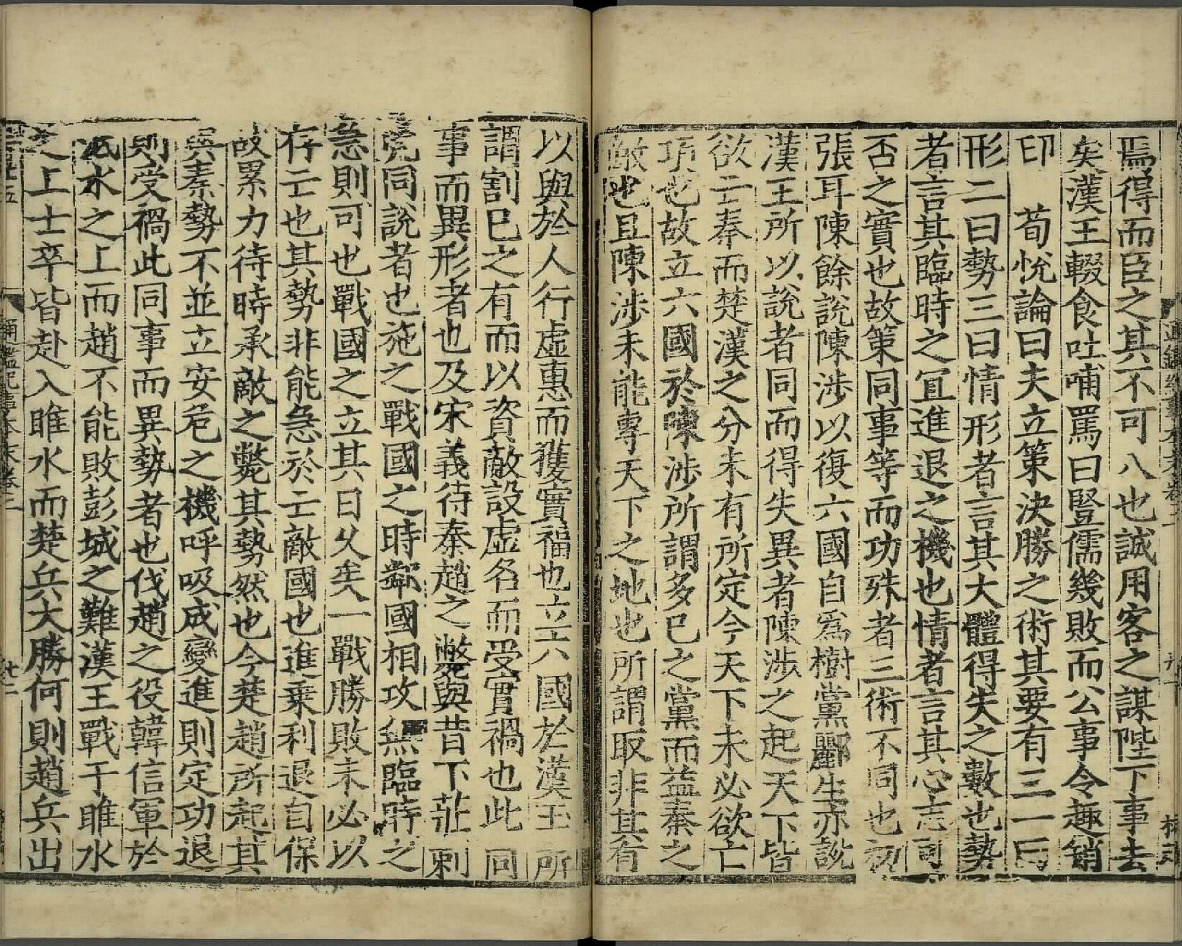 焉得而臣之其不可八也誠用客之謀陛下事去
矣漢王輟食吐哺罵曰豎儒幾敗而公事令趣銷
印　荀悅論曰夫立策決勝之術其要有三一曰
形二曰勢三曰情形者言其大體得失之數也勢
者言其臨時之冝進退之機也情者言其心志可
否之實也故策同事等而功殊者三術不同也初
張耳陳餘說陳涉以復六國自爲樹黨酈生亦說
漢王所以說者同而得失異者陳涉之起天下皆
欲亡秦而楚漢之分未有所定今天下未必欲亡
項也故立六國於陳涉所謂多巳之黨而益秦之
敵也且陳涉未能專天下之地也所謂取非其有
以與於人行虛惠而獲實福也立六國於漢王所
謂割巳之有而以資敵設虛名而受實禍也此同
事而異形者也及宋義待秦趙之斃與昔卞莊刺
虎同說者也施之戰國之時鄰國相攻無臨時之
急則可也戰國之立其日乆矣一戰勝敗未必以
存亡也其勢非能急於亡敵國也進乗利退自保
故累力待時承敵之斃其勢然也今楚趙所起其
與秦勢不並立安危之機呼吸成變進則定功退
則受禍此同事而異勢者也伐趙之役韓信軍於
泜水之上而趙不能敗彭城之難漢王戰于睢水
之上士卒皆赴入睢水而楚兵大勝何則趙兵出
通鑑紀事本末卷二
廿二